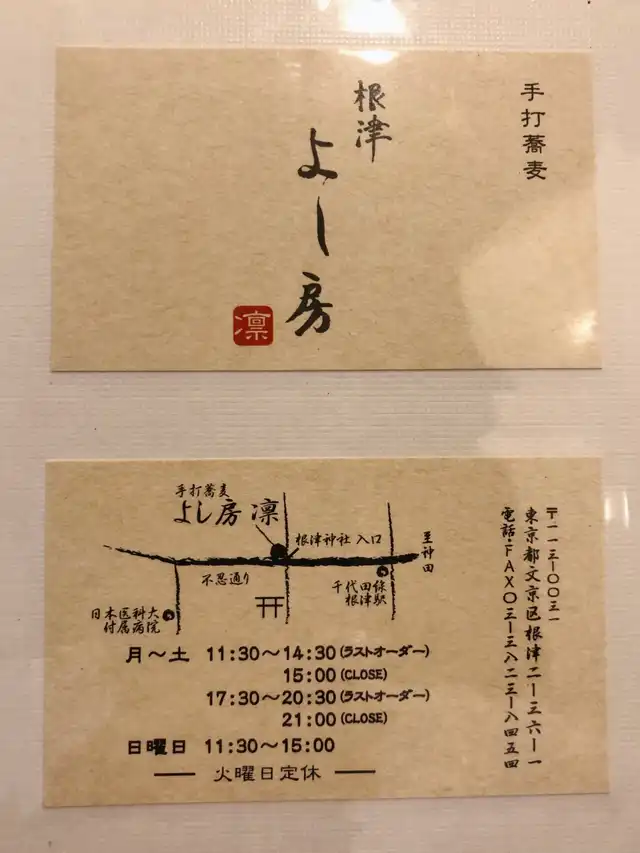 手打蕎麦
根津
よし房
凛
手打蕎麦
よし房 凛
根津神社 入口
至神田
不忍通り
千代田線
根津駅
日本医科大
付属病院
月〜土 11:30〜14:30(ラストオーダー)
15:00(CLOSE)
17:30〜20:30(ラストオーダー)
21:00(CLOSE)
日曜日 11:30〜15:00
火曜日定休
〒一一三ー〇〇三一
東京都文京区根津二ー三六ー一
電話・FAX〇三ー三八二三ー八四五四